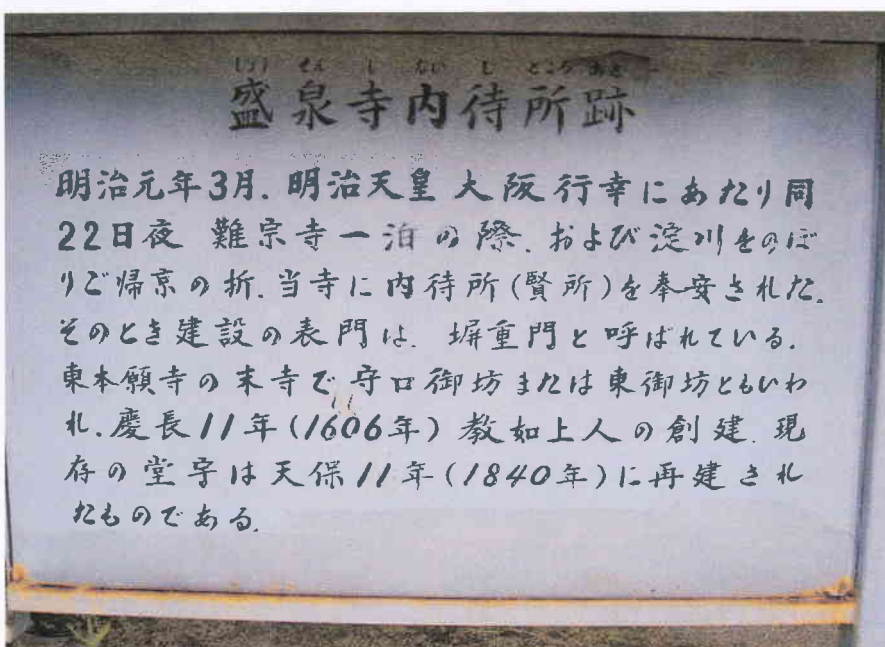 じょう せん じ ない し ところ あと
盛泉寺内待所跡
明治元年3月、明治天皇大阪行幸にあたり同
22日夜 難宗寺一泊の際、および淀川をのぼ
りご帰京の折、当寺に内待所(賢所)を奉安された。
そのとき建設の表門は、塀重門と呼ばれている。
東本願寺の末寺で守口御坊または東御坊ともいわ
れ、慶長11年(1606年)教如上人の創建、現
存の堂宇は天保11年(1840年)に再建され
たものである。